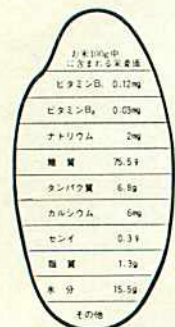 お米100g中
に含まれる栄養価
ビタミンB₁ 0.12mg
ビタミンB₂ 0.03mg
ナトリウム 2mg
糖質 75.5g
タンパク質 6.8g
カルシウム 6mg
センイ 0.3g
脂質 1.3g
水分 15.5g
その他